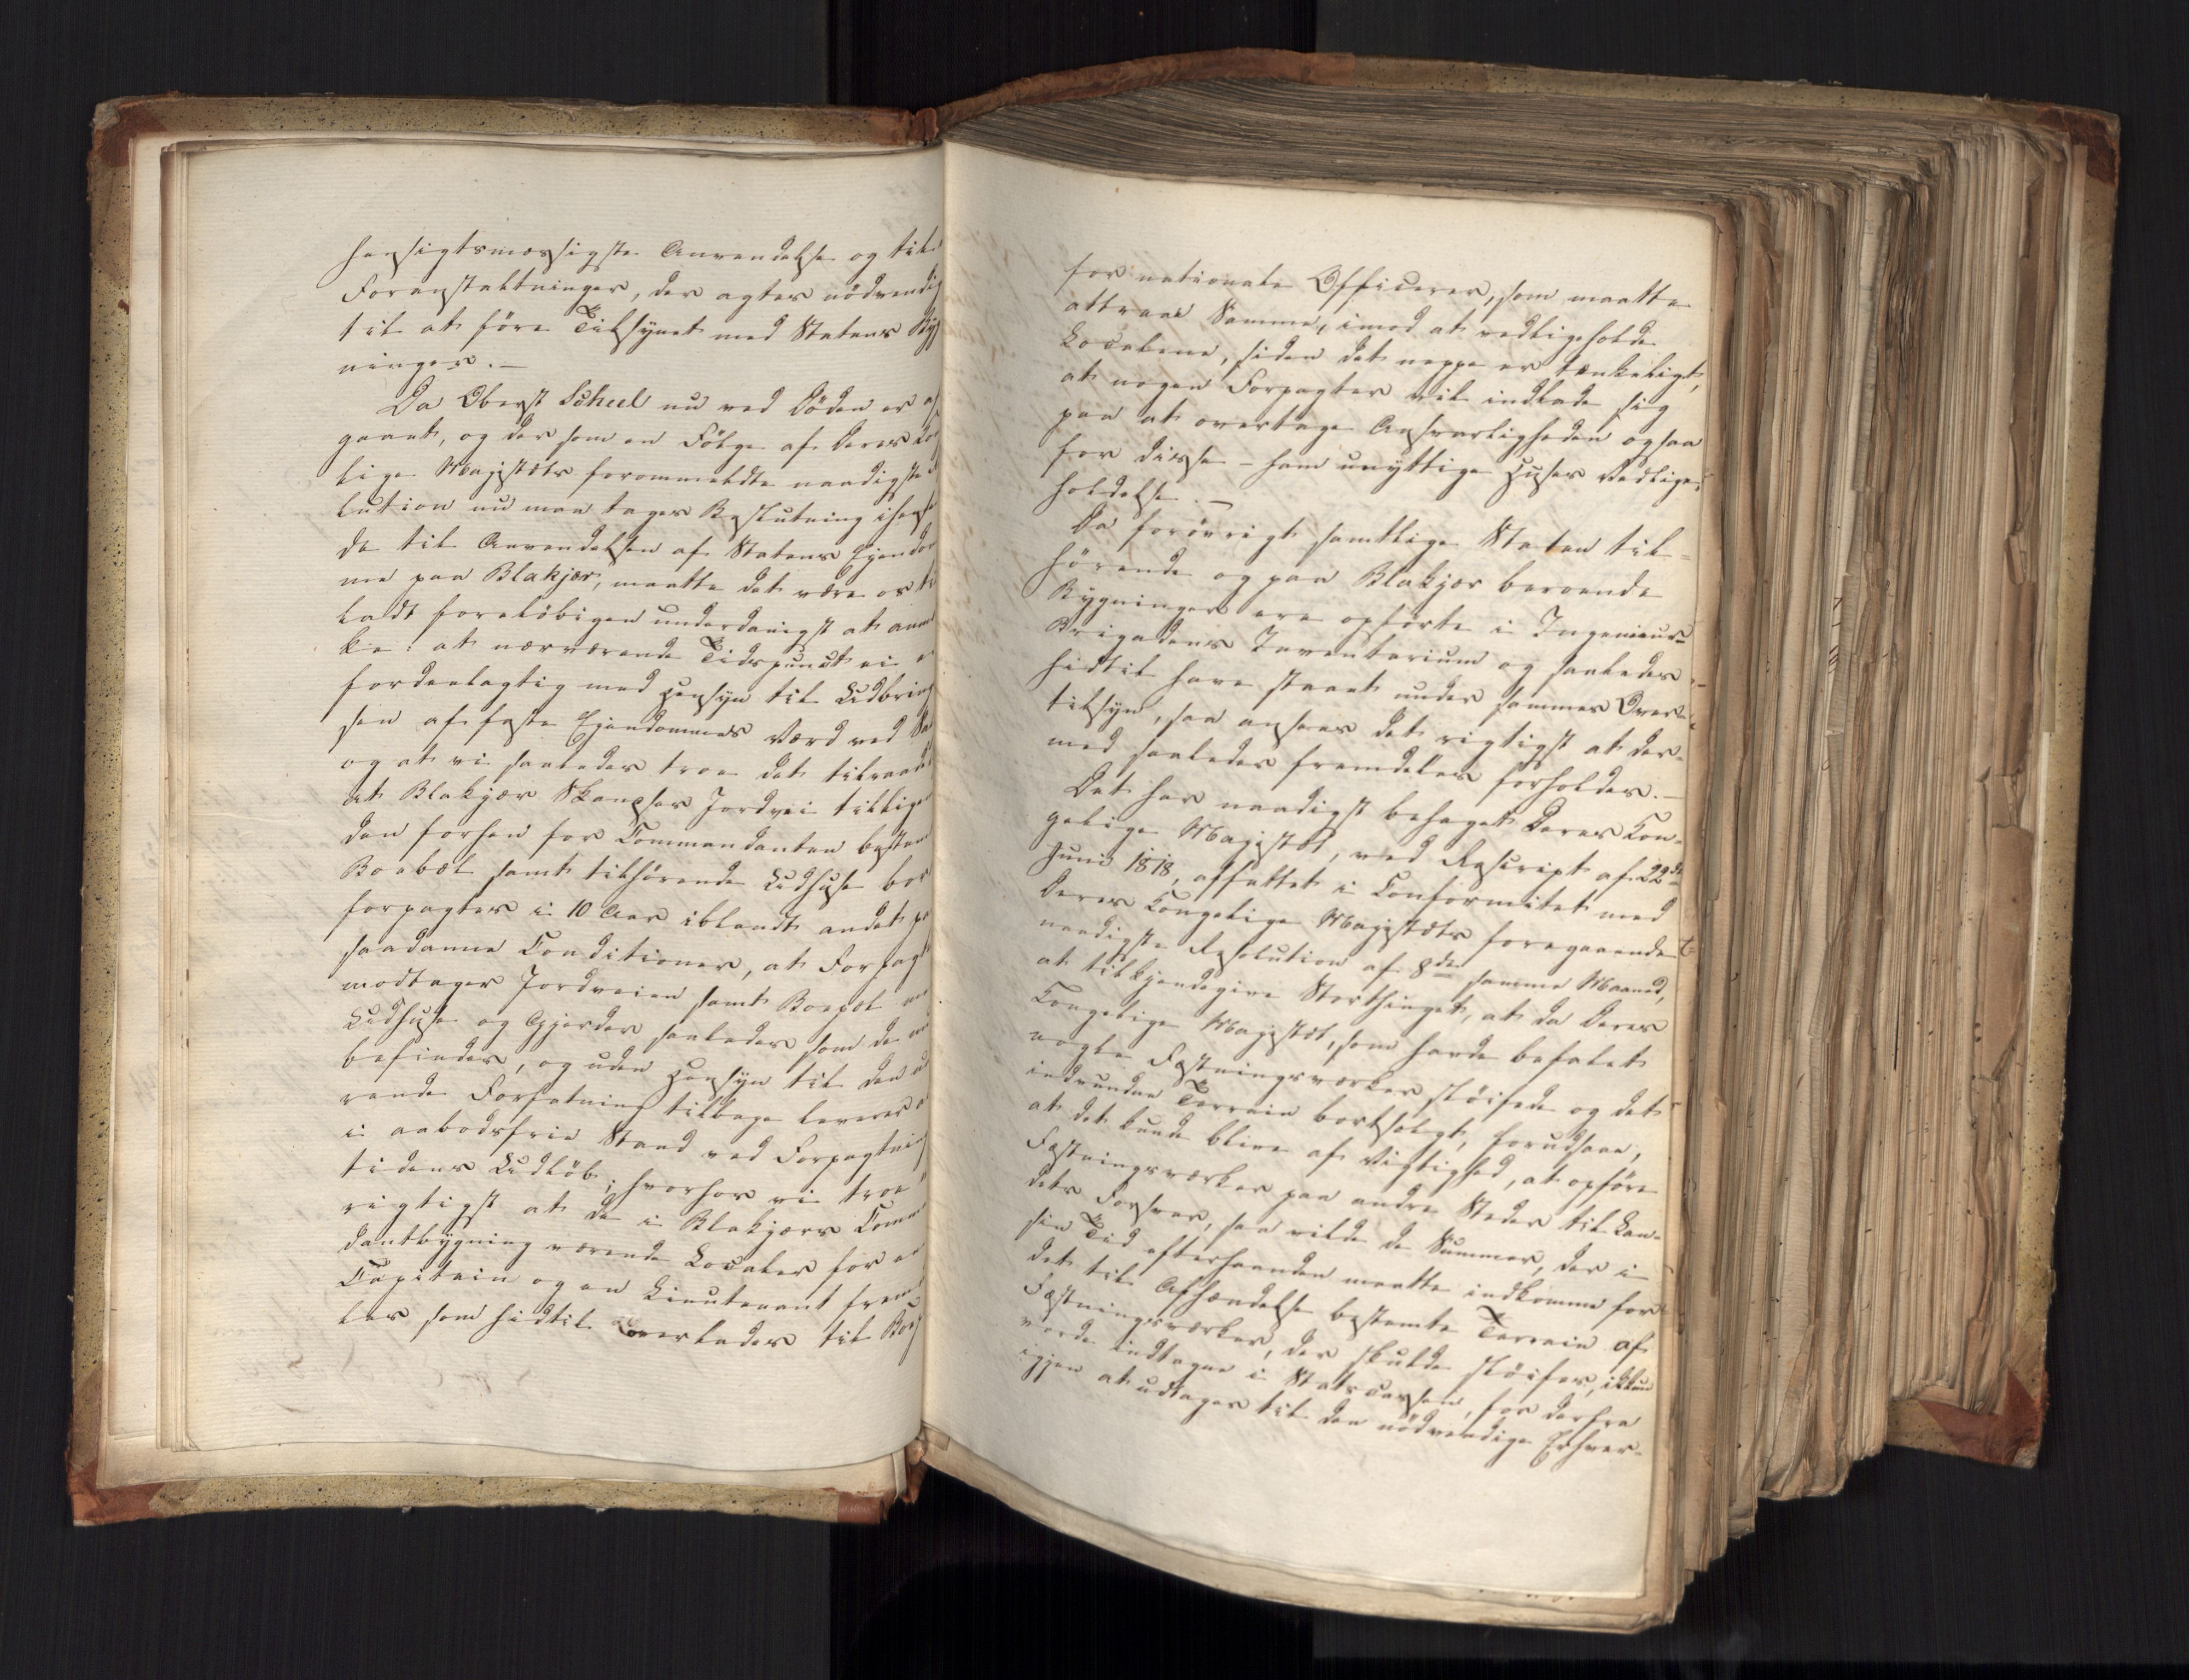 hensigtsmæssigste Anvendelse og til
Foranstaltninger, der agtes nödvendig
til at före Tilsynet med Statens Byg
ninger. —
Da Oberst Scheel nu ved Döden er af
gaaet, og der som en Fölge af Deres Kon
lige Majestæts forommeldte naadigste
lution nu maa tages Beslutning ihense
de til Anvendelsen af Statens Eiendom
me paa Blakjer, maatte det være os til
ladt foreløbigen underdanigst at anmær
ke: at nærværende Tidspunct ei er
fordeelagtig med Hensyn til Udbring
sen af faste Ejendommes Værd ved Sa
og at vi saaledes troe det tilraade
at Blakjær Skandses Jordvei tilligem
den forhen for Commandanten bestem
Boebæl samt tilhörende Udhuse bor
forpagtes i 10 Aar iblandt andet paa
saadanne Conditioner, at Forpagt
modtager Jordveien samt Boepæl med
Udhuse og Gjerder saaledes som de nu
befindes, og uden Hensyn til den nu
rende Forfatning tilbage leveres
i aabodsfrie Stand ved Forpagtning
tidens Udlöb; hvorhos vi troe
rigtigst at de i Blakjærs Comman
dantbygning værende Localer for en
Capitain og en Lieutenant frem
les som hidtil overlades til Boe
for nationale Officerer, som maatte
attraae Samme, imod at vedligeholde
Localerne, siden det neppe er tænkeligt,
at nogen Forpagter vil indlade sig
paa at overtage Ansvarligheden ogsaa
for disse – ham unyttige Huses Vedlige-
holdelse. —
Da forövrigt samtlige Staten til-
hörende og paa Blakjær beroende
Bygninger ere opförte i Ingenieur-
Brigadens Inventarium og saaledes
hidtil have staaet under sammes Over-
tilsyn, saa ansees det rigtigst at der-
med saaledes fremdeles forholdes. —
Det har naadigst behaget Deres Kon-
gelige Majestæt, ved Rescript af 22de
Juni 1818, affattet i Conformitet med
Deres Kongelige Majestæts foregaaende
naadigste Resolution af 8de samme Maaned,
at tilkjendegive Storthinget, at da Deres
Kongelige Majestæt, som havde befalet
nogle Fæstningsværker slöifede og det
indvundne Terrain bortsolgt, forudsaae,
at det kunde blive af Vigtighed, at opföre
Fæstningsværker paa andre Steder til Lan-
dets Forsvar, saa vilde de Summer, der i
sin Tid efterhaanden maatte indkomme for
det til Afhændelse bestemte Terrain af
Fæstningsværker, der skulde slöifes, ikkun
vorde indtagne i Statscassen, for derfra
igjen at udtages til den nödvendige Erhver-